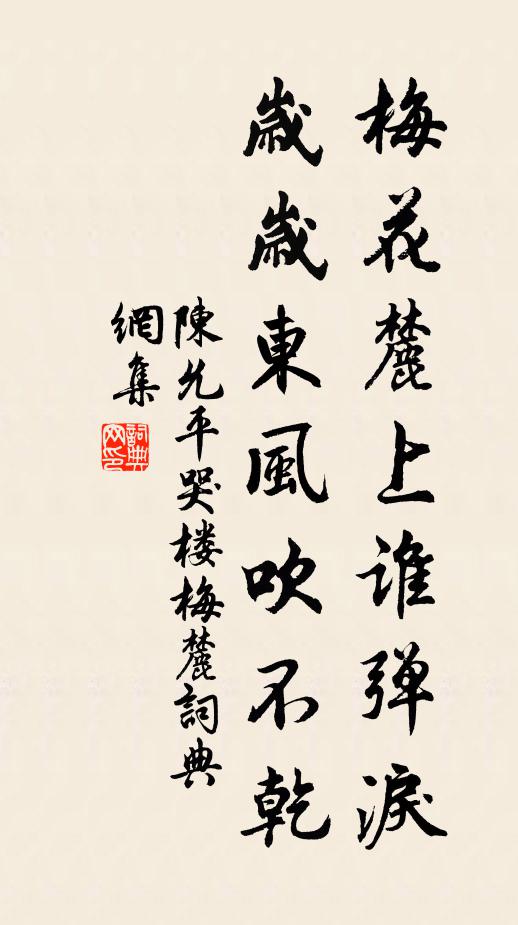 梅花麓上谁弹淚
歲歲東風吹不乾
陳允平哭楼梅麓詞典
網集
詞典网印